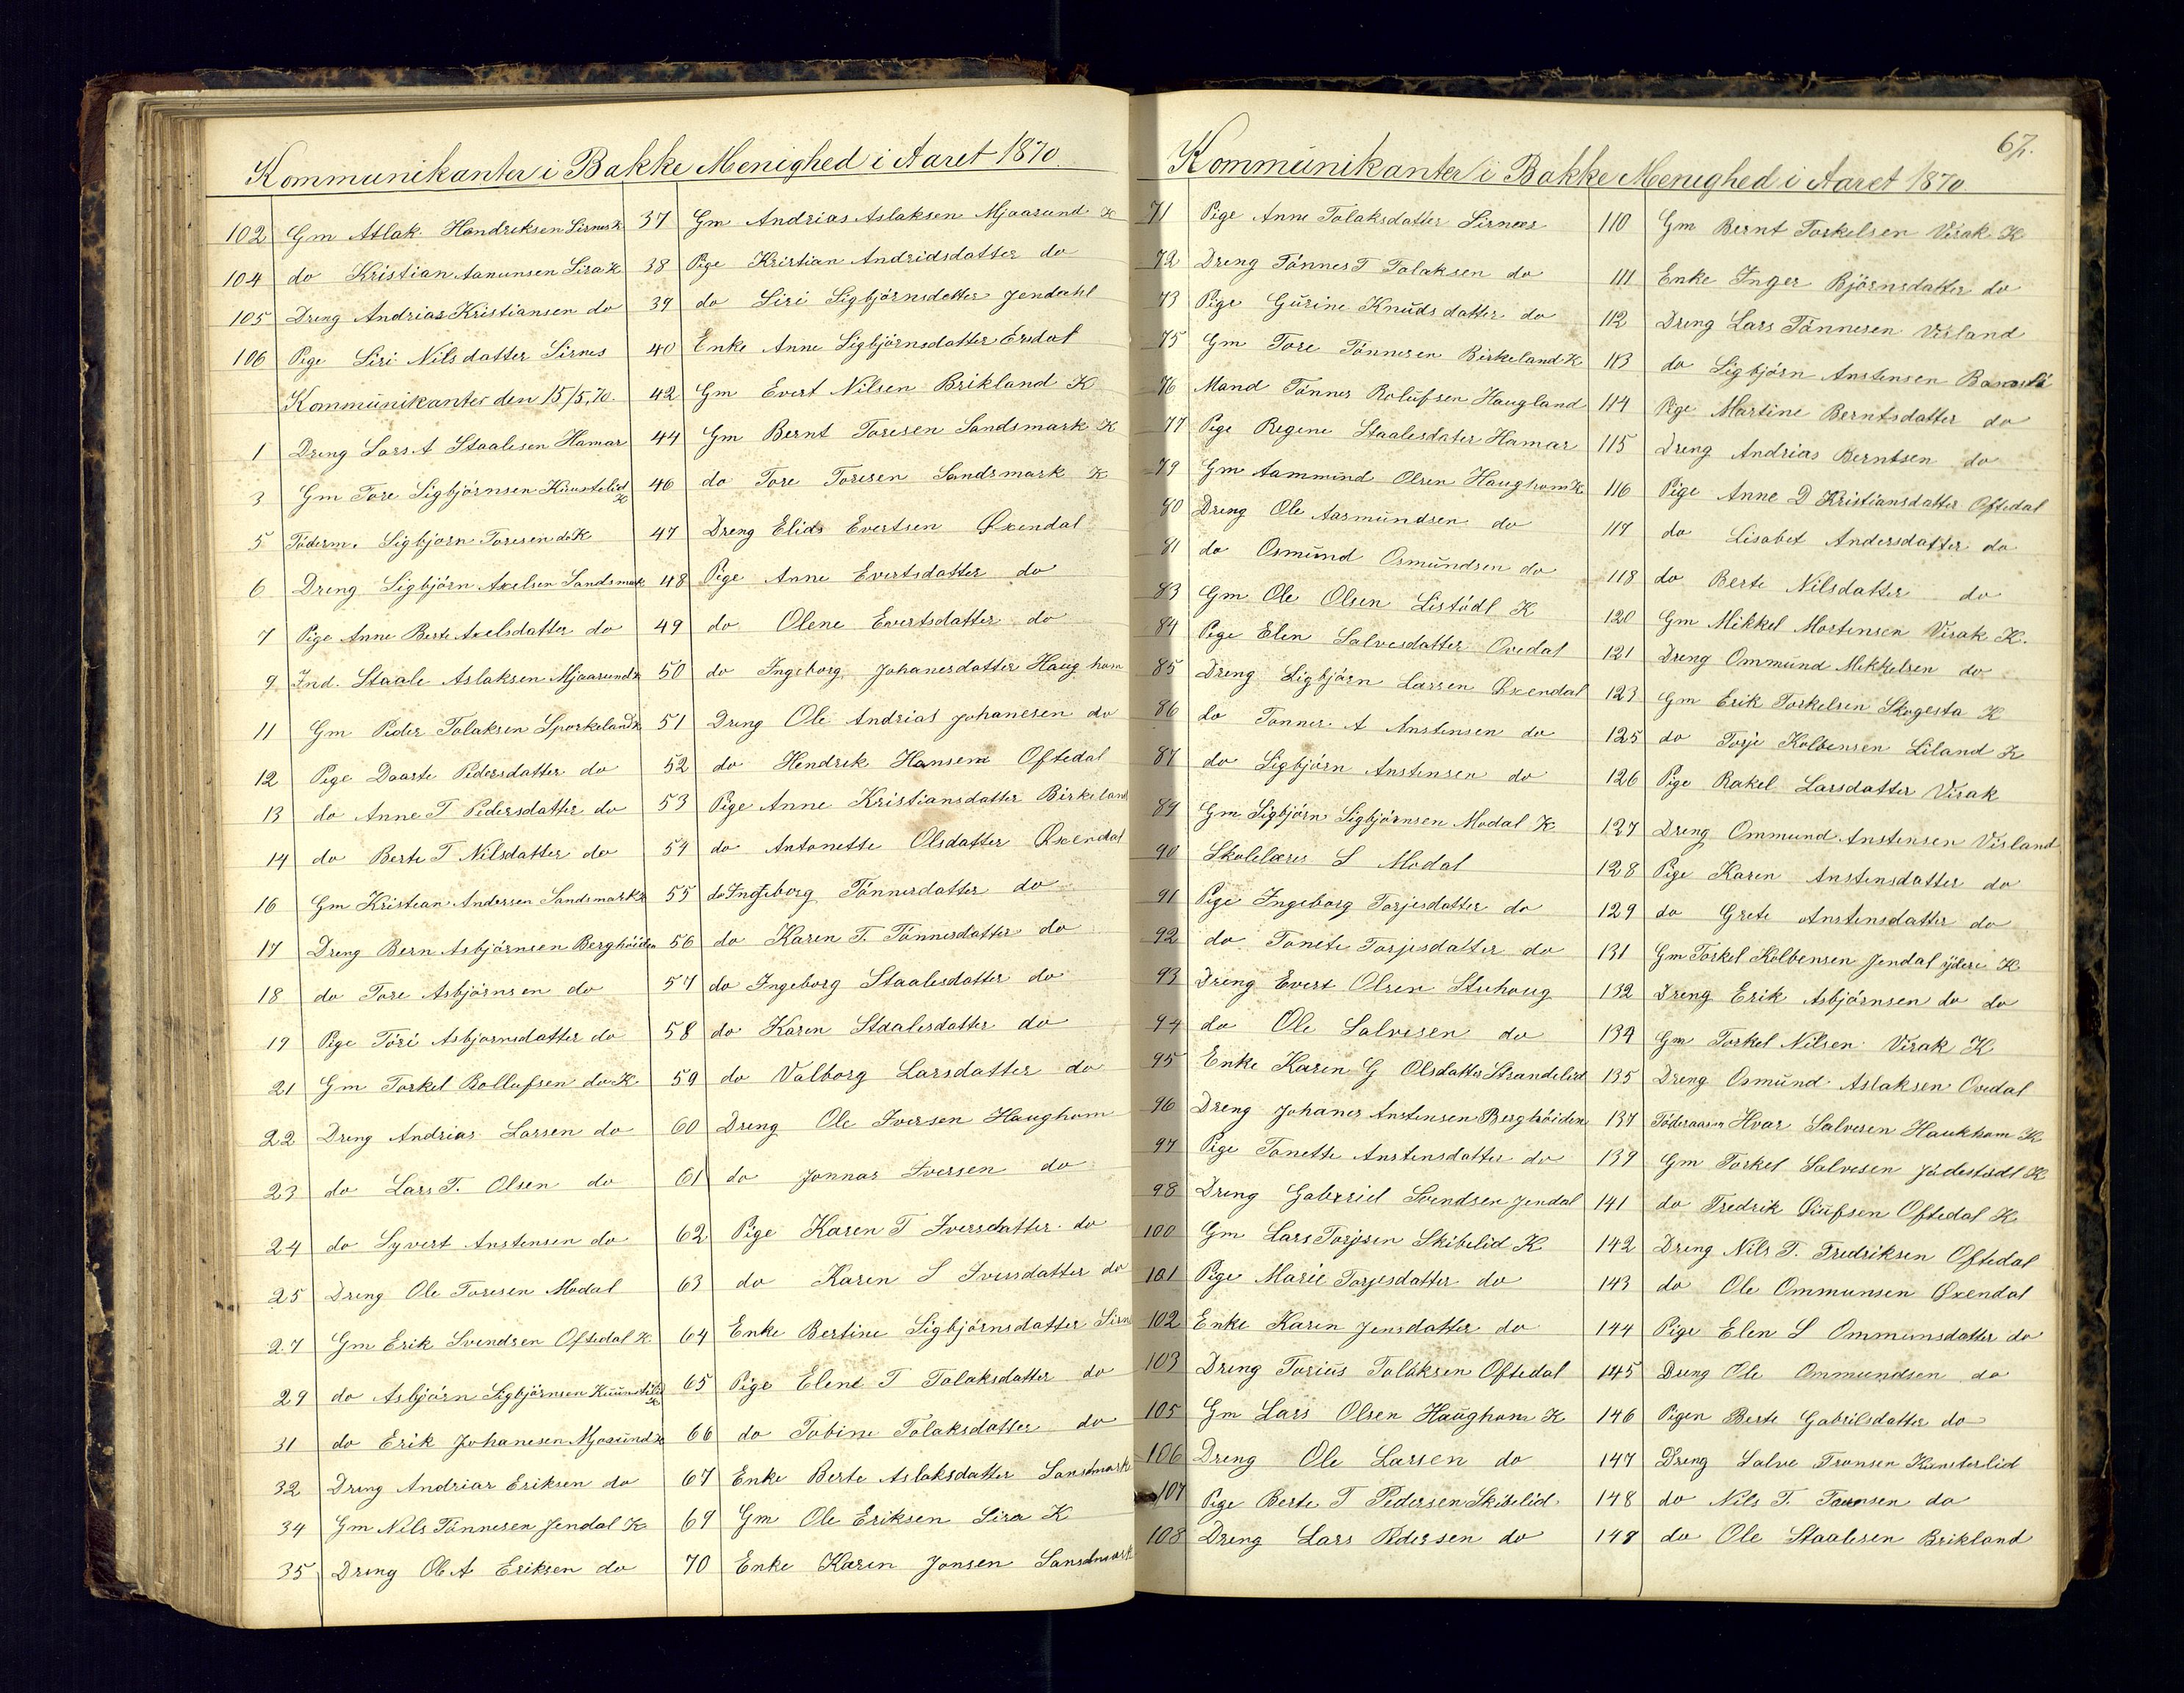 Kommunikanter i Bakke Menighed i Aaret 1870.
102 Gm Atlak Hendriksen Sirnes K
104 do Kristian Aanunsen Sira K
105 Dreng Andrias Kristiansen do
106 Pige Siri Nilsdatter Sirnes
Kommunikanter den 15/5.70.
1 Dreng Lars A Staalesen Hamar
3 Gm Tore Sigbjörnsen K
5 Föderm. Sigbjorn Toresen do K
6 Dreng Sigbjörn Axelsen Sandsmark
7 Pige Anne Berte Axelsdatter do
9 Ind. Staale Aslaksen Mjaasund K
11 Gm Peder Tolaksen Sporkeland K
12 Pige Daarte Pedersdatter do
13 do Anne T Pedersdatter do
14 do Berte T Nilsdatter do
16 Gm Kristian Andersen Sandsmark K
17 Dreng Bern Asbjörnsen Berghöiden
18 do Tore Asbjörnsen do
19 Pige Töri Asbjornsdatter do
21 Gm Torkel Rollufsen do K
22 Dreng Andrias Larsen do
23 do Lars T. Olsen do
24 do Syvert Anstensen do
25 Dreng Ole Toresen Modal
27 Gm Erik Svendsen Oftedal K
29 do Asbjörn Sigbjörnsen K
31 do Erik Johanesen Mjosund K
32 Dreng Andrias Eriksen do
34 Gm Nils Tönnesen Jendal K
35 Dreng Ol. A Eriksen do
37 Gm Andrias Aslaksen Mjaasund K
38 Pige Kristian Andridsdatter do
39 do Siri Sigbjörnsdatter Jendahl
40 Enke Anne Sigbjörnsdatter Ersdal
42 Gm Evert Nilsen Brikland K
44 Gm Bernt Toresen Sandsmark K
46 do Tore Toresen Sandsmark K
47 Dreng Elids Evertsen Øxendal
48 Pige Anne Evertsdatter do
49 do Olene Evertsdatter do
50 do Ingeborg Johanesdatter Haughom
51 Dreng Ole Andrias Johanesen do
52 do Hendrek Hansen Oftedal
53 Pige Anne Kristiansdatter Birkeland
54 do Antonette Olsdatter Øxendal
55 do Ingeborg Tönnesdatter do
56 do Karen T. Tönnesdatter do
57 do Ingeborg Staalesdatter do
58 do Karen Staalesdatter do
59 do Valborg Larsdatter do
60 Dreng Ole Iversen Haughom
61 do Jonnas Iversen do
62 Pige Karen T Iversdatter do
63 do Karen S Iversdatter do
64 Enke Bertine Sigbjörnsdatter Sirn
65 Pige Elene T Tolaksdatter do
66 do Tobine Tolaksdatter do
67 Enke Berte Aslaksdatter Sansdmark
69 Gm Ole Eriksen Sira K
70 Enke Karen Jonsen Sansdmark
67.
Kommunikanter i Bakke Menighed i Aaret 1870.
71 Pige Anne Tolaksdatter Sirnes
72 Dreng Tönnes T Tolaksen do
73 Pige Gurine Knudsdatter do
75 Gm Tore Tönnesen Birkeland K
76 Mand Tönnes Rolufsen Haugland
77 Pige Regene Staalesdater Hamar
79 Gm Aammund Olsen Haughom K
80 Dreng Ole Aasmundsen do
81 do Osmund Osmundsen do
83 Gm Ole Olsen Listödl K
84 Pige Elen Salvesdatter Ovedal
85 Dreng Sigbjörn Larsen Øxendal
86 do Tonnes A Anstensen do
87 do Sigbjörn Anstensen do
89 Gm Sigbjörn Sigbjörnsen Modal K
90 Skolelærer S Modal
91 Pige Ingeborg Torjesdatter do
92 do Tonete Torjesdatter do
93 Dreng Evert Olsen Stuhoug
94 do Ole Salvesen do
95 Enke Karen G Olsdatter Strandelid
96 Dreng Johanes Anstensen Berghöiden
97 Pige Tonette Anstensdatter do
98 Dreng Gabreiel Svendsen Jendal
100 Gm Lars Torjesen Skibelid K
101 Pige Marie Torjesdatter do
102 Enke Karen Jensdatter do
103 Dreng Torius Tolaksen Oftedal
105 Gm Lars Olsen Haughom K
106 Dreng Ole Larsen do
107 Pige Berte T Pedersen Skibelid
108 Dreng Lars Pedersen do
110 Gm Bernt Torkelsen Virak K
111 Enke Inger Björnsdatter do
112 Dreng Lars Tönnesen Visland
113 do Sigbjörn Anstensen
114 Pige Martine Berntsdatter do
115 Dreng Andrias Berntsen do
116 Pige Anne D Kristiansdatter Oftedal
117 do Lisabet Andersdatter do
118 do Berte Nilsdatter do
120 Gm Mikkel Mortensen Virak K.
121 Dreng Ommund Mikkelsen do
123 Gm Erik Torkelsen Skogesta K
125 do Torje Kolbensen Liland K
126 Pige Rakel Larsdatter Virak
127 Dreng Ommund Anstensen Visland
128 Pige Karen Anstensdatter do
129 do Grete Anstensdatter do
131 Gm Torkel Kolbensen Jendal ijdere K
132 Dreng Erik Asbjörnsen do do
134 Gm Torkel Nilsen Virak K
135 Dreng Osmund Aslaksen Ovedal
137 Hvar Salvesen Haukhom K
139 Gm Torkel Salvesen K
141 do Fredrik Oftedal K
142 Dreng Nils T. Fredriksen Oftedal
143 do Ole Ommunsen Øxendal
144 Pige Elen S Ommunsdatter do
145 Dreng Ole Ommundsen do
146 Pigen Berte Gabrilsdatter do
147 Dreng Salve Tronsen Kunsterlid
148 do Nils T. do
148 do Ole Staalesen Brikland